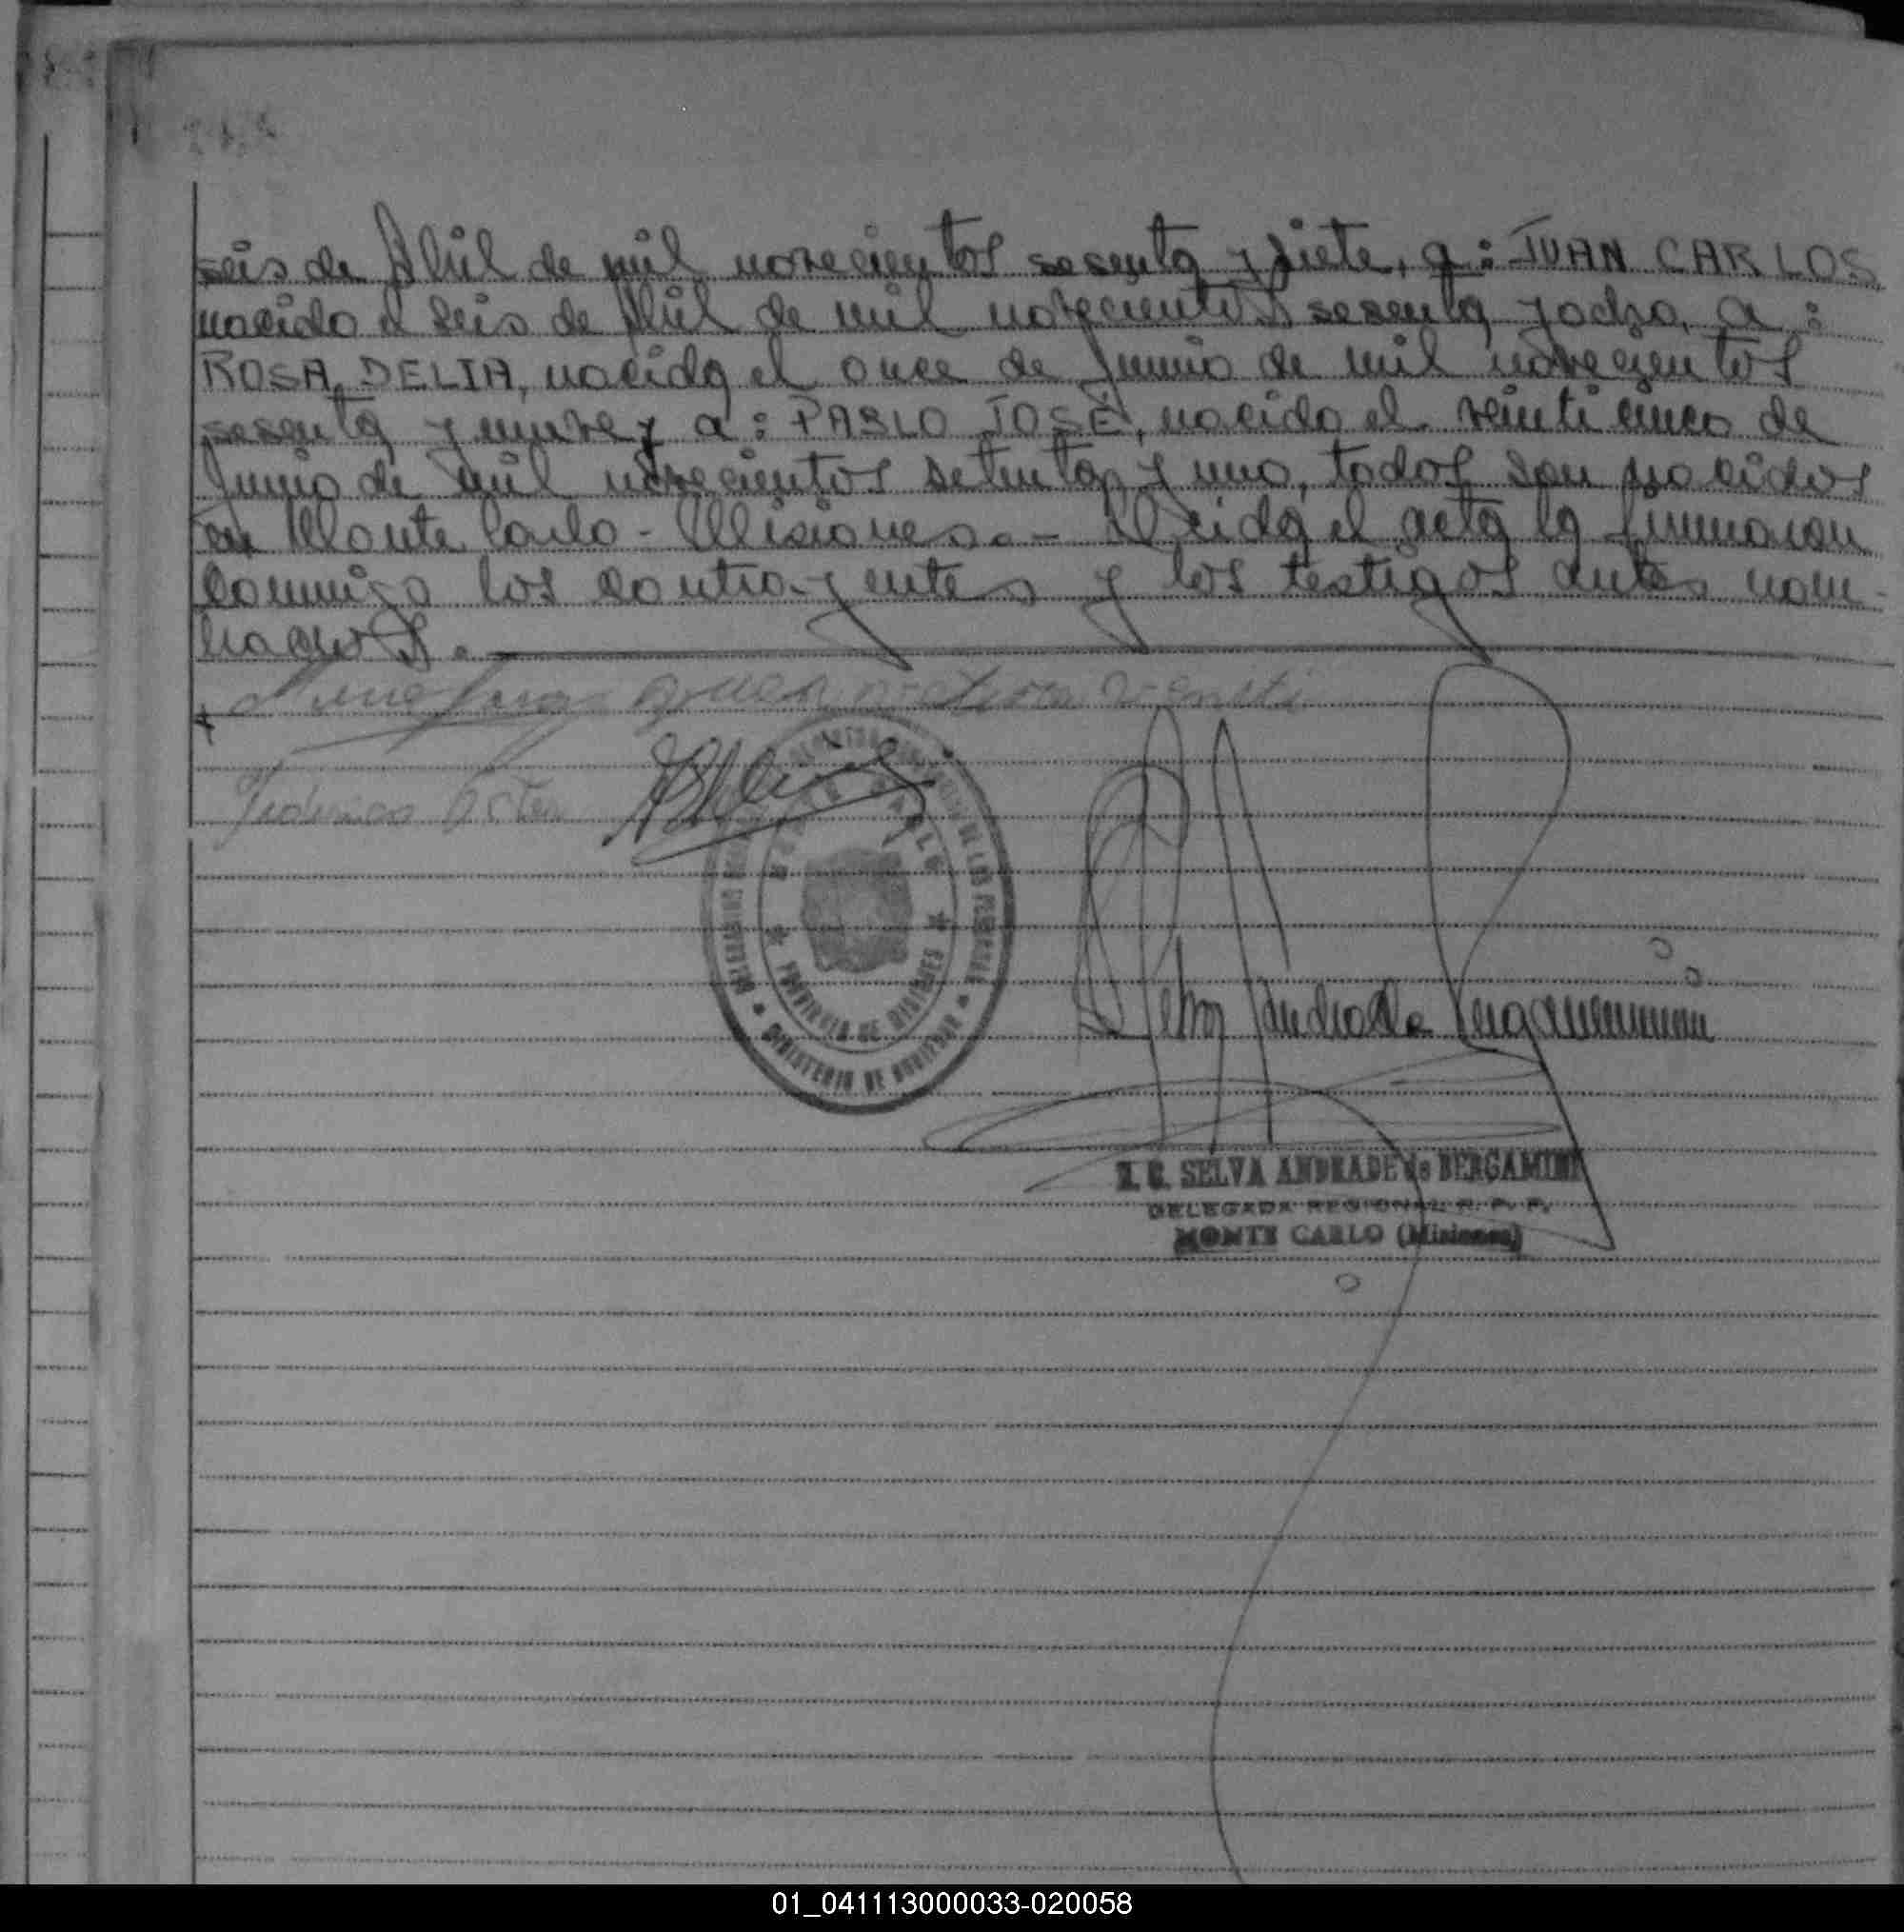 seis de Abril de mil novecientos sesenta y siete, a: JUAN CARLOS
nacido el seis de Abril de mil novecientos sesenta y ocho, a:
ROSA DELIA, nacida el once de Junio de mil novecientos
sesenta y nueve y a: PABLO JOSÉ, nacido el veinticinco de
Junio de mil novecientos setenta y uno, todos son nacidos
en Monte Carlo - Misiones.- Leida el acta la firmaron
conmigo los contrayentes y los testigos antes nom-
brados.
MONTE CARLO
PROVINCIA DE MISIONES
MINISTERIO DE GOBIERNO
Selva Andrade Bergamini
SELVA ANDRADE de BERGAMINI
DELEGADA REGIONAL R. P. P.
MONTE CARLO (Misiones)
01_041113000033-020058